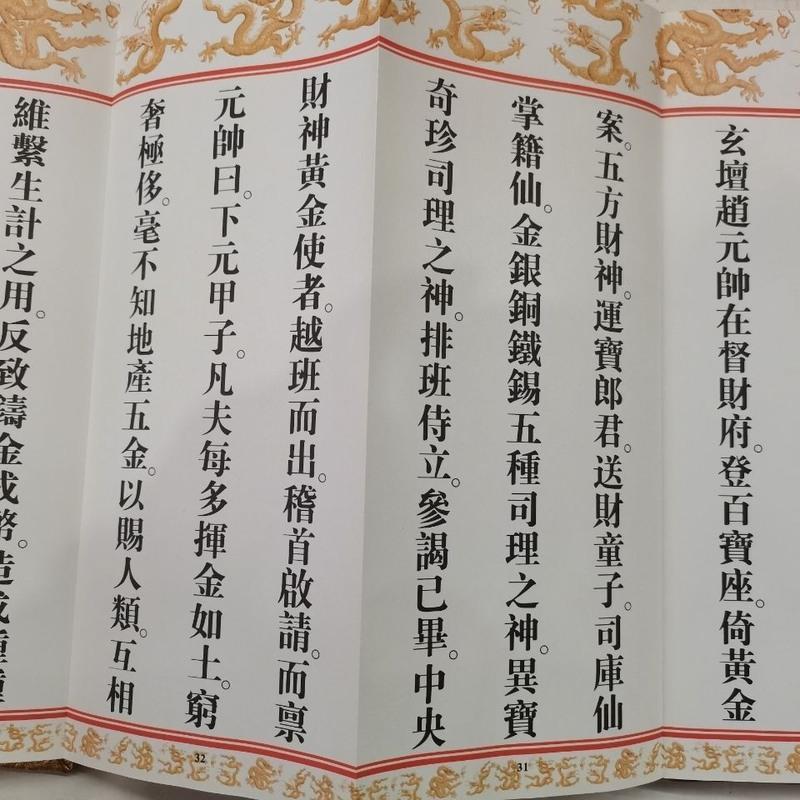 玄壇趙元帥在督財府。登百寶座。倚黃金
案。五方財神。運寶郎君。送財童子。司庫仙
掌籍仙。金銀銅鐵錫五種司理之神。異寶
奇珍司理之神。排班侍立。參謁已畢。中央
31
財神黃金使者。越班而出。稽首啟請。而稟
元帥曰。下元甲子。凡夫每多揮金如土。窮
奢極侈。毫不知地產五金。以賜人類。互相
32
維繫生計之用。反致鑄金成幣。造成種種